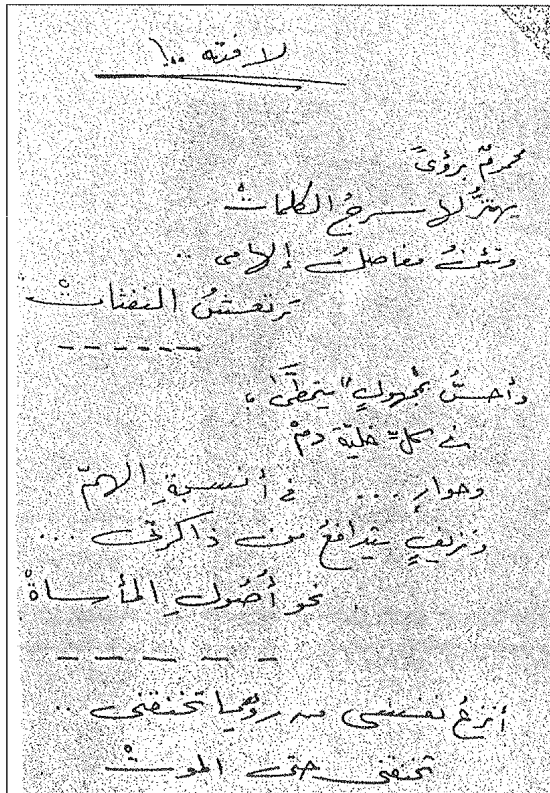 لافتة ..!
محمومٌ برؤىً
يهتزُّ لها سرجُ الكلماتْ
وتئنُّ مفاصلُ إلهامى ..
ترتعشُ النفثاتْ
------
وأحسُّ بمجهولٍ "يتمطَّى"،
فى كلِّ خليّة دمْ
وحوارٍ ... فى أنسجةِ الهمّ
ونزيفٍ يتدافعُ من ذاكرتى ...
نحو أصُولِ المأساةْ
------
أنزعُ نفسى من رؤيا تخنقنى ..
تخنقنى حتى الموتْ